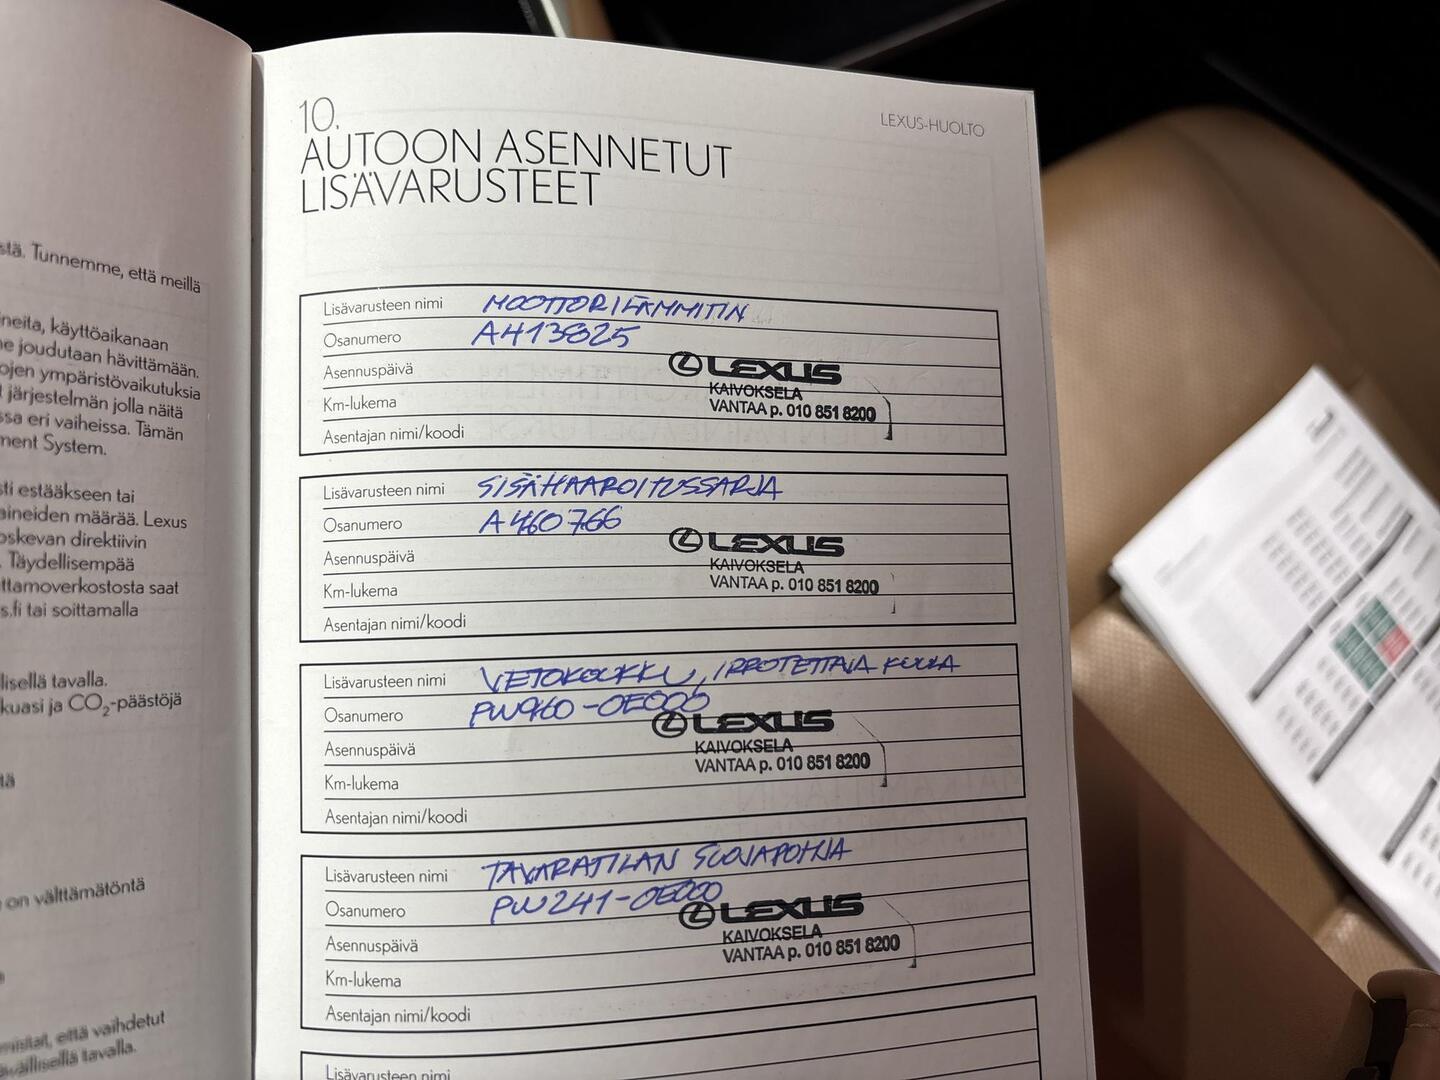 stä. Tunnemme, että meillä
neita, käyttöaikanaan
ne joudutaan hävittämään.
ojen ympäristövaikutuksia
järjestelmän jolla näitä
ssa eri vaiheissa. Tämän
ment System.
sti estääkseen tai
aineiden määrää. Lexus
oskevan direktiivin
. Täydellisempää
ttamoverkostosta saat
s.fi tai soittamalla
llisellä tavalla.
kuasi ja CO₂-päästöjä
tä
on välttämätöntä
että vaihdetut
tavalla.
10.
AUTOON ASENNETUT
LISÄVARUSTEET
LEXUS-HUOLTO
Lisävarusteen nimi MOOTTORILÄMMITIN
Osanumero A413825
Asennuspäivä
Km-lukema
Asentajan nimi/koodi
LEXUS
KAIVOKSELA
VANTAA p. 010 851 8200
Lisävarusteen nimi SISÄHAAROITUSSARJA
Osanumero A460766
Asennuspäivä
Km-lukema
Asentajan nimi/koodi
LEXUS
KAIVOKSELA
VANTAA p. 010 851 8200
Lisävarusteen nimi VETOKOUKKU, IRROTETTAVA KUULA
Osanumero PW960-0E006
Asennuspäivä
Km-lukema
Asentajan nimi/koodi
LEXUS
KAIVOKSELA
VANTAA p. 010 851 8200
Lisävarusteen nimi TAVARATILAN SUOJAPOHJA
Osanumero PW241-0E000
Asennuspäivä
Km-lukema
Asentajan nimi/koodi
LEXUS
KAIVOKSELA
VANTAA p. 010 851 8200
Lisävarusteen nimi